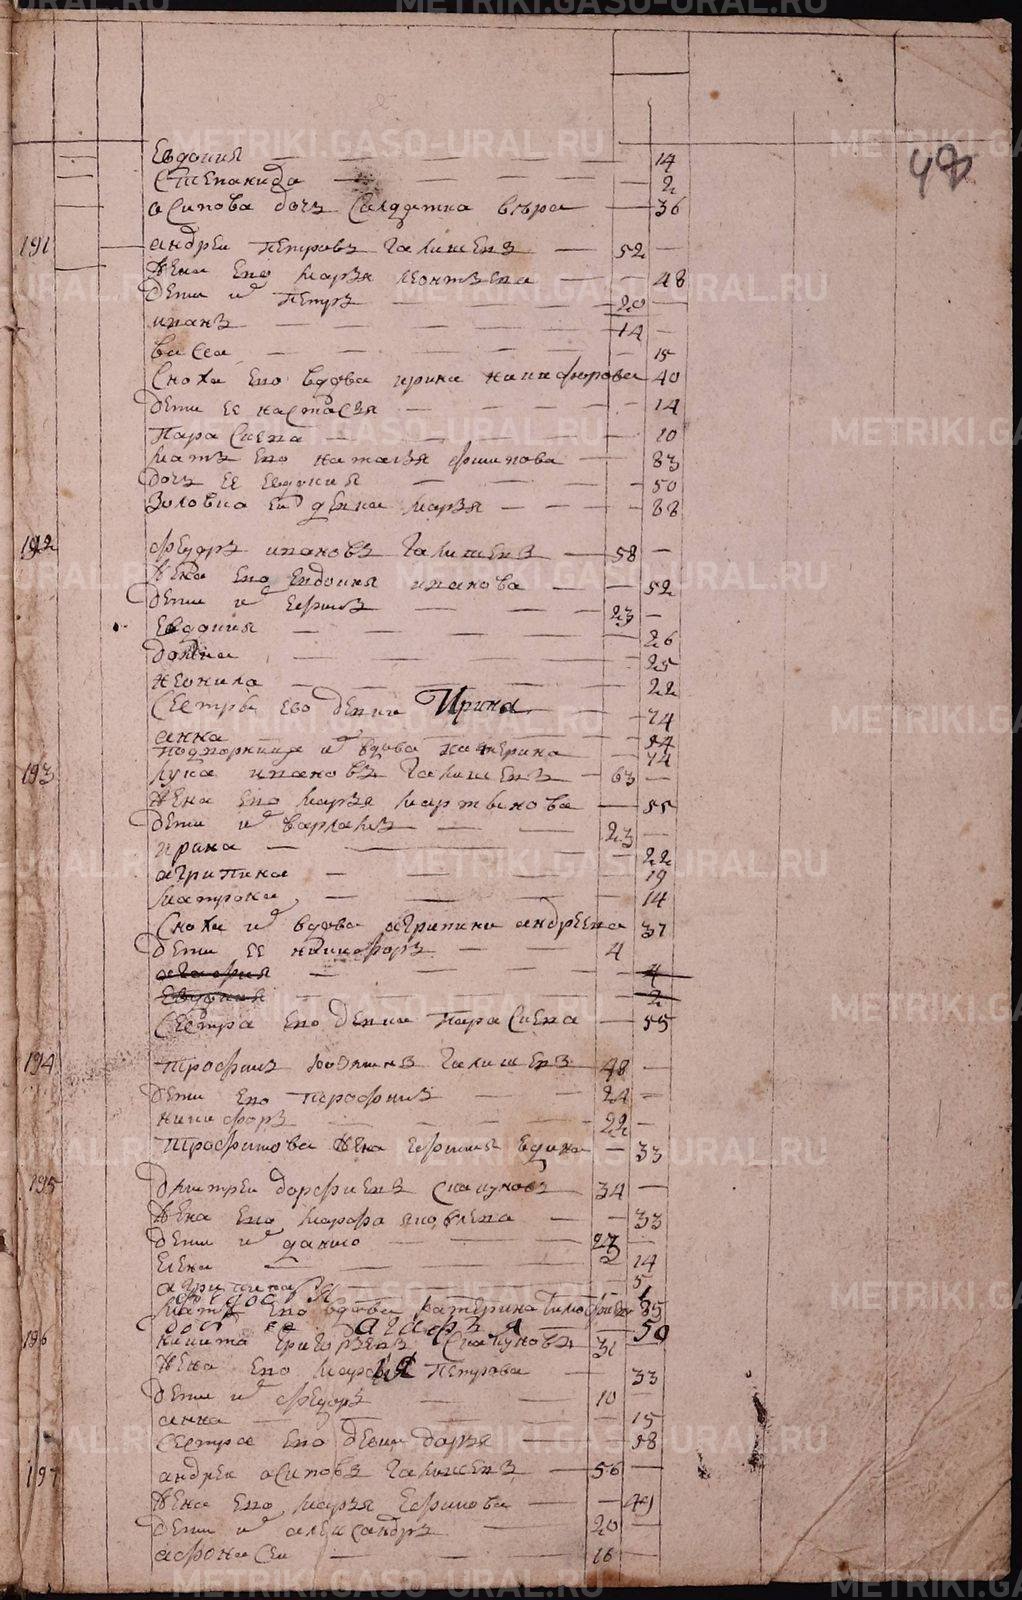 47
Евдокия — 14
Степанида — 2
осипова дочь Салдатка вѣра — 36
191 андреи петровъ Галишевъ — 52 —
жена ево марья леонтьева — 48
дети их петръ — 20 —
иванъ — 14 —
васса — 15
Сноха ево вдова ирина никифорова 40
дети ее настасья — 14
параскева — 10
мать ево наталья — 83
дочь ее евдокия — 50
золовка ей девка марья — 88
192 федоръ ивановъ Галишевъ — 58 —
жена ево евдокия иванова — 52
дети их ефимъ — 23 —
Евдокия — 26
— 25
неонила — 22
сестры ево девки Ирина — 74
анна — 54
вдова катерина — 74
193 лука ивановъ Галишевъ — 63 —
жена ево марья мартынова — 55
дети их варламъ — 23 —
ирина — 22
агрипина — 19
матрона — 14
Сноха их вдова агрипина андреева 37
дети ее никифоръ — 4
агафия — 4
Евдокия — 2
Сестра ево девка параскева — 55
194 трофимъ Галишевъ — 48 —
дети ево — 24 —
никифоръ — 22 —
трофимова жена ефимья — 33
195 дмитреи дорофиевъ — 34 —
жена ево марфа яковлева — 33
дети их данило —
елена — 14
агрипина — 5
федосья
мать ево вдова катерина Тимофеева 35
доч ее агафья — 50
196 никита григорьевъ — 31 —
жена ево марья петрова — 33
дети их федоръ — 10
анна — 15
Сестра ево девка дарья — 58
197 андреи осиповъ Галишевъ — 56 —
жена ево марья Ефимова — 49
дети их александръ — 20 —
афонасеи — 16 —
METRIKI.GASO-URAL.RU